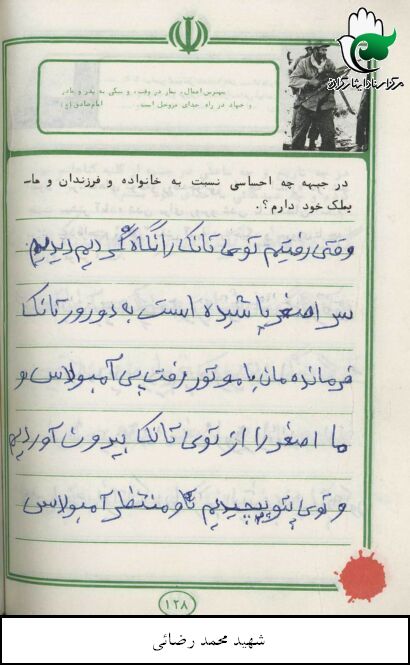 مرکز اسناد ایثارگران
بهترین اعمال، نماز در وقت، و نیکی به پدر و مادر
و جهاد در راه خدای عزوجل است. امام صادق (ع)
در جبهه چه احساسی نسبت به خانواده و فرزندان و ما-
یملک خود دارم؟.
وقتی رفتیم توی تانک را نگاه کردیم دیدیم
سر اصغر پاشیده است به دورور تانک
فرمانده مان با موتور رفت پی آمبولاس و
ما اصغر را از توی تانک بیرون آوردیم
و توی پتو پیچیدیم و منتظر آمبولاس
۱۲۸
شهید محمد رضائی